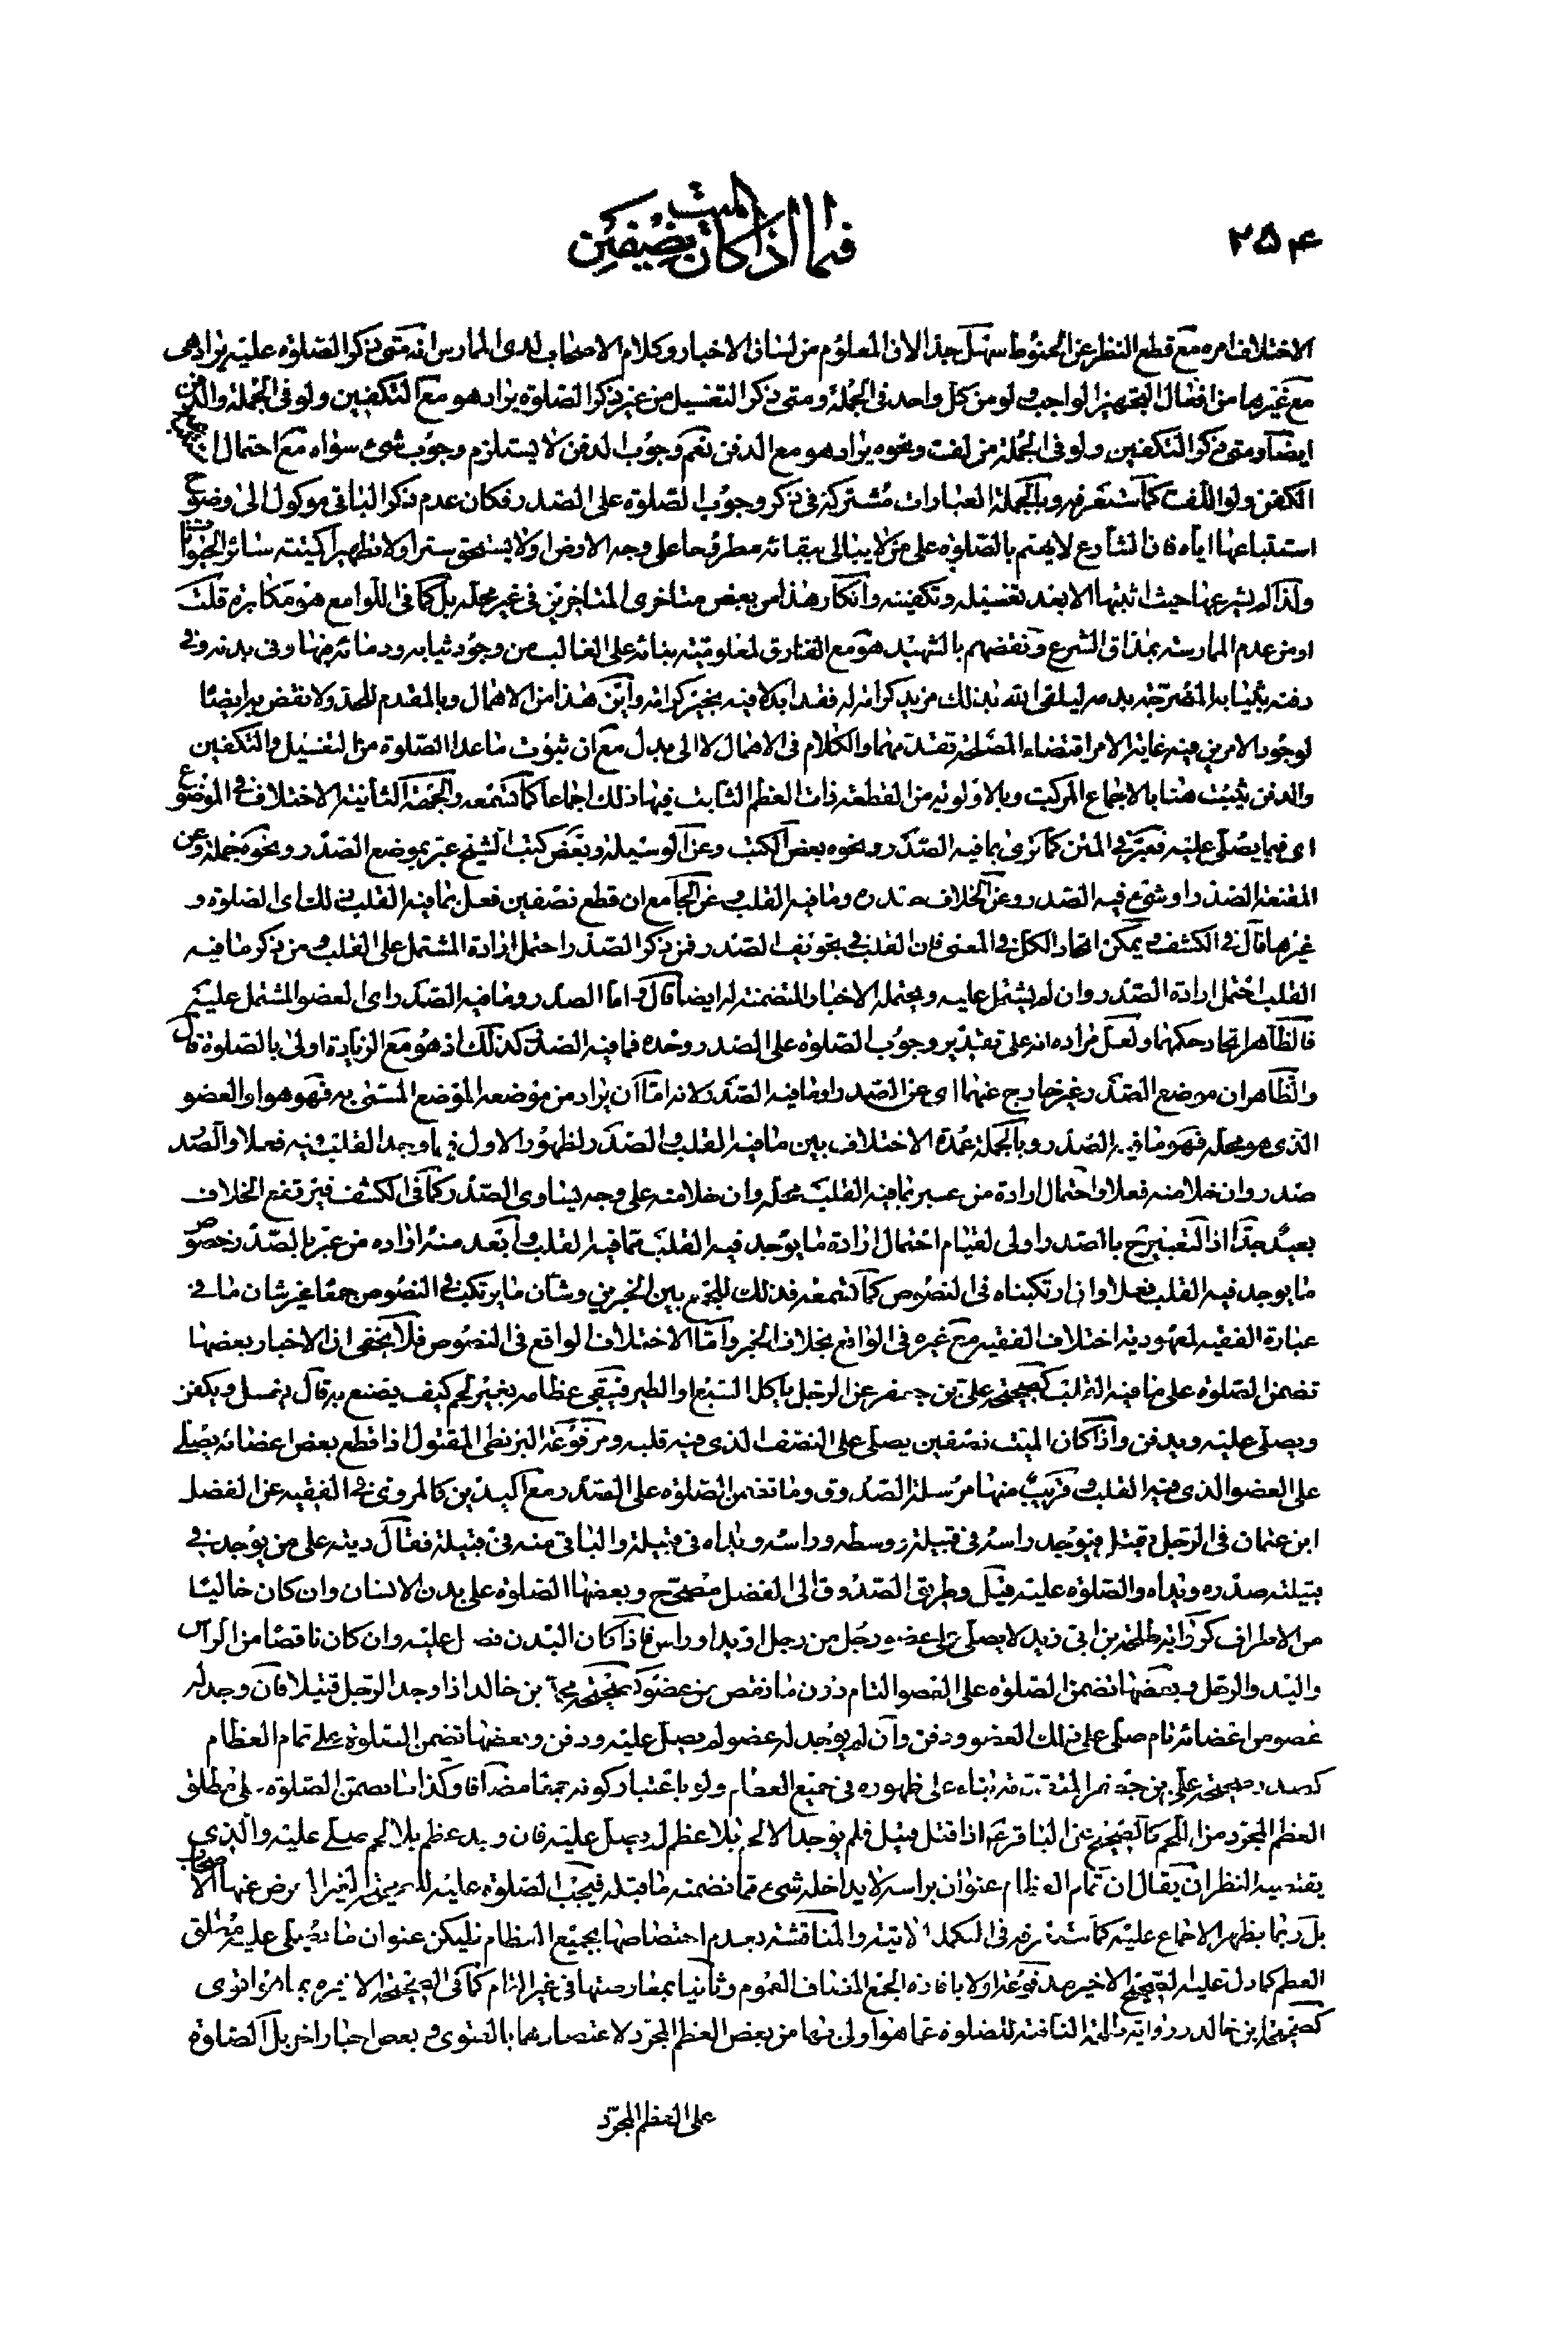 ٢٥۴
فيما اذا كان الميت نصفين
الاختلاف امره مع قطع النظر عن الحنوط سهل جدا لان المعلوم من لسان الاخبار وكلام الاصحاب لدى الممارس انه متى ذكر الصلوة عليه يراد هى
مع غيرها من افعال التجهيز الواجب ولو من كل واحد فى الجملة ومتى ذكر التغسيل من غير ذكر الصلوة يراد هو مع التكفين ولو فى الجملة والدفن
ايضا ومتى ذكر التكفين ولو فى الجملة من لفت ونحوه يراد هو مع الدفن نعم وجوب الدفن لا يستلزم وجوب شىء سواه مع احتمال
الكفن ولو اللفت كما ستعرفه وبالجملة العبارات مشتركة فى ذكر وجوب الصلوة على الصدر فكان عدم ذكر الباقى موكول الى وضوح
استتباعها اياه فان الشارع لا يهتم بالصلوة على من لا يبالى ببقائه مطروحا على وجه الارض ولا يستحق سترا ولا تطهيرا كميتة سائر الحيوانات
ولذا لم يشرعها حيث اثبتها الا بعد تغسيله وتكفينه وانكار هذا من بعض متاخرى المتاخرين فى غير محله بل كما فى اللوامع هو مكابرة قلت
او من عدم الممارسة بمذاق الشرع ونقضهم بالشهيد هو مع الفارق لمعلومية بنائه على الغالب من وجود ثيابه ودمائه منها وفى بدنه وفى
دفنه بثيابه المضرجة بدمه ليلقى الله بذلك مزيد كرامة له فقد ابدلا فيه بخير كرامة واين هذا من الاهمال وبالمقدم للحد ولا نقض به ايضا
لوجود الامرين فيه غاية الامر اقتضاء المصلحة تقدمهما والكلام فى الاهمال لا الى بدل مع ان ثبوت ما عدا الصلوة من التغسيل والتكفين
والدفن يثبت هنا بالاجماع المركب وبالاولوية من القطعة ذات العظم الثابت فيها ذلك اجماعا كما تسمعه والجهة الثانية الاختلاف فى الموضوع
اى فيما يصلى عليه فعبر فى المتن كما ترى بما فيه الصدر ونحوه بعض الكتب وعن الوسيلة وبعض كتب الشيخ عبر بموضع الصدر ونحوه جملة وعن
المقنعة الصدر او شىء فيه الصدر وعن الخلاف صدره وما فيه القلب وعن الجامع ان قطع نصفين فعل بما فيه القلب ذلك اى الصلوة و
غيرها قال فى الكشف ويمكن اتحاد الكل فى المعنى فان القلب فى تجويف الصدر فمن ذكر الصدر احتمل ارادة المشتمل على القلب ومن ذكر ما فيه
القلب احتمل ارادة الصدر وان لم يشتمل عليه ويحتمله الاخبار المتضمنة له ايضا قال واما الصدر وما فيه الصدر اى العضو المشتمل عليه
فالظاهر اتحاد حكمهما ولعل مراده انه على تقدير وجوب الصلوة على الصدر وحده فما فيه الصدر كذلك اذ هو مع الزيادة اولى بالصلوة قال
والظاهر ان موضع الصدر غير خارج عنهما اى عن الصدر او ما فيه الصدر لانه اما ان يراد من موضعه الموضع المسمى به فهو هو او العضو
الذى هو محله فهو ما فيه الصدر وبالجملة عمدة الاختلاف بين ما فيه القلب والصدر لظهور الاول فيما وجد القلب فيه فعلا والصدر
صدر وان خلا منه فعلا واحتمال ارادة من عبر بما فيه القلب محله وان خلا منه على وجه يساوى الصدر كما فى الكشف فيرتفع الخلاف
بعيد جدا اذ التعبير ح بالصدر اولى لقيام احتمال ارادة ما يوجد فيه القلب مما فيه القلب وابعد منه ارادة من عبر بالصدر خصوص
ما يوجد فيه القلب فعلا وان ارتكبناه فى النصوص كما تسمعه فذلك للجمع بين الخبرين وشان ما يرتكب فى النصوص جمعا غير شان ما فى
عبارة الفقيه لمعهودية اختلاف الفقيه مع غيره فى الواقع بخلاف الخبر واما الاختلاف الواقع فى النصوص فلا يخفى ان الاخبار بعضها
تضمن الصلوة على ما فيه القلب كصحيحة على بن جعفر عن الرجل ياكله السبع او الطير فتبقى عظامه بغير لحم كيف يصنع به قال يغسل ويكفن
ويصلى عليه ويدفن واذا كان الميت نصفين يصلى على النصف الذى فيه قلبه ومرفوعة البزنطى المقتول اذا قطع بعض اعضائه يصلى
على العضو الذى فيه القلب وقريب منها مرسلة الصدوق وما تضمن الصلوة على الصدر مع اليدين كالمروى فى الفقيه عن الفضل
ابن عثمان فى الرجل يقتل فيوجد راسه فى قبيلة ووسطه وراسه ويداه فى قبيلة والباقى منه فى قبيلة فقال ديته على من يوجد فى
قبيلته صدره ويداه والصلوة عليه قيل وطريق الصدوق الى الفضل صحيح وبعضها الصلوة على بدن الانسان وان كان خاليا
من الاطراف كرواية طلحة بن ابى زيد لا يصلى على عضو رجل من رجل او يد او راس فاذا كان البدن فصل عليه وان كان ناقصا من الراس
واليد والرجل وبعضها تضمن الصلوة على العضو التام دون ما نقص من عضو كصحيحة محمد بن خالد اذا وجد الرجل قتيلا فان وجد له
عضو من اعضائه تام صلى على ذلك العضو ودفن وان لم يوجد له عضو لم يصل عليه ودفن وبعضها تضمن الصلوة على تمام العظام
كصدر صحيحة على بن جعفر المتقدمة بناء على ظهوره فى جميع العظام ولو باعتبار كونه جمعا مضافا وكذا ما تضمن الصلوة على مطلق
العظم المجرد من اللحم كالصحيح عن الباقر ع اذا قتل قتيل فلم يوجد الا لحم بلا عظم لم يصل عليه فان وجد عظم بلا لحم صلى عليه والذى
يقتضيه النظر ان يقال ان تمام العظام عنوان براسه لا يداخله شىء مما تضمنه ما قبله فيجب الصلوة عليه للصحيحة الغير المعرض عنها الاصحاب
بل ربما يظهر الاجماع عليه كما ستعرفه فى التكملة الاتية والمناقشة بعدم اختصاصها بجميع العظام فليكن عنوان ما يصلى عليه مطلق
العظم كما دلت عليه الصحيحة الاخيرة مدفوعة اولا بافادة الجمع المضاف العموم وثانيا بمعارضتها فى غير التام كما فى الصحيحة الاخيرة بما هو اقوى
كصحيحة ابن خالد ورواية طلحة النافية للصلوة عما هو اولى منها من بعض العظم المجرد لاعتصارهما بالفتوى وبعض اخبار اخر بل الصلوة
على العظم المجرد